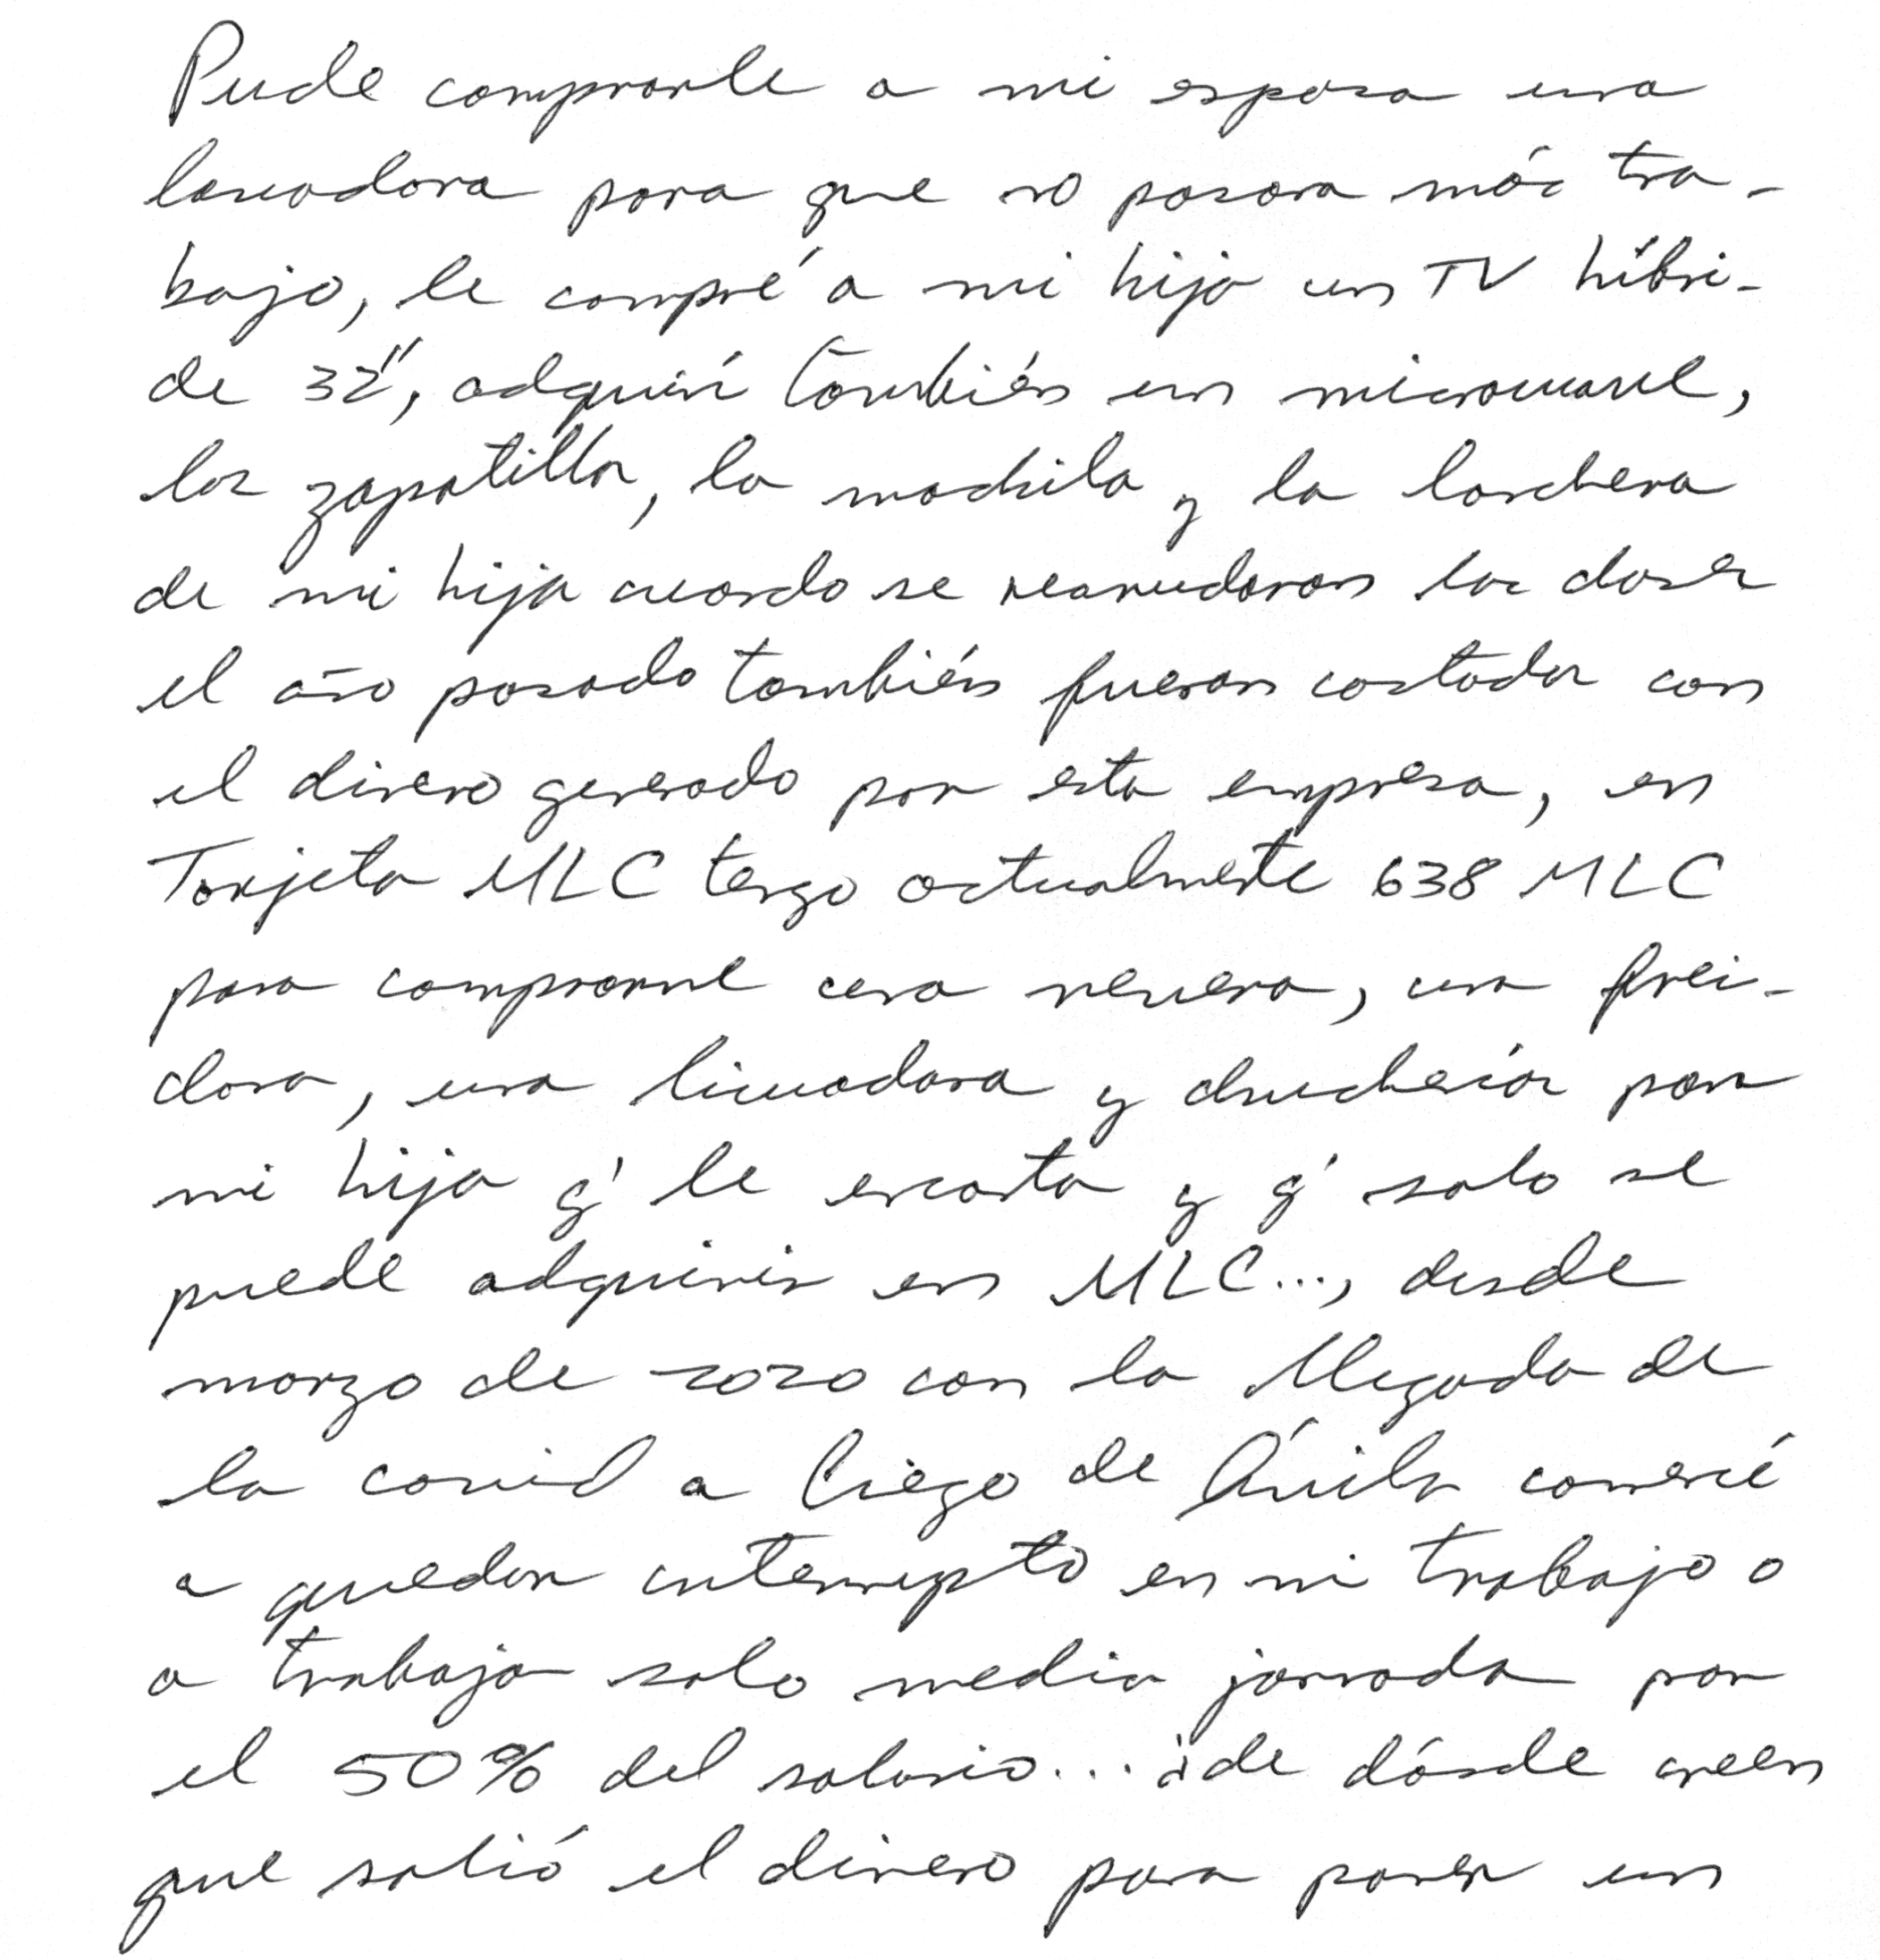 Pude comprarle a mi esposa una
lavadora para que no pasara más tra-
bajo, le compré a mi hija un TV híbri-
de 32", adquirí también un microwave,
las zapatilla, la mochila y la lonchera
de mi hija cuando se reanudaron las clases
el año pasado también fueron costadas con
el dinero generado por esta empresa, en
Tarjeta MLC tengo actualmente 638 MLC
para comprarme una nevera, una frei-
dora, una licuadora y chucherías para
mi hija q' le encanta y q' solo se
puede adquirir en MLC..., desde
marzo de 2020 con la llegada de
la covid a Ciego de Ávila comencé
a quedar interrupto en mi trabajo o
a trabajar solo media jornada por
el 50% del salario... ¿de dónde creen
que salió el dinero para poner un